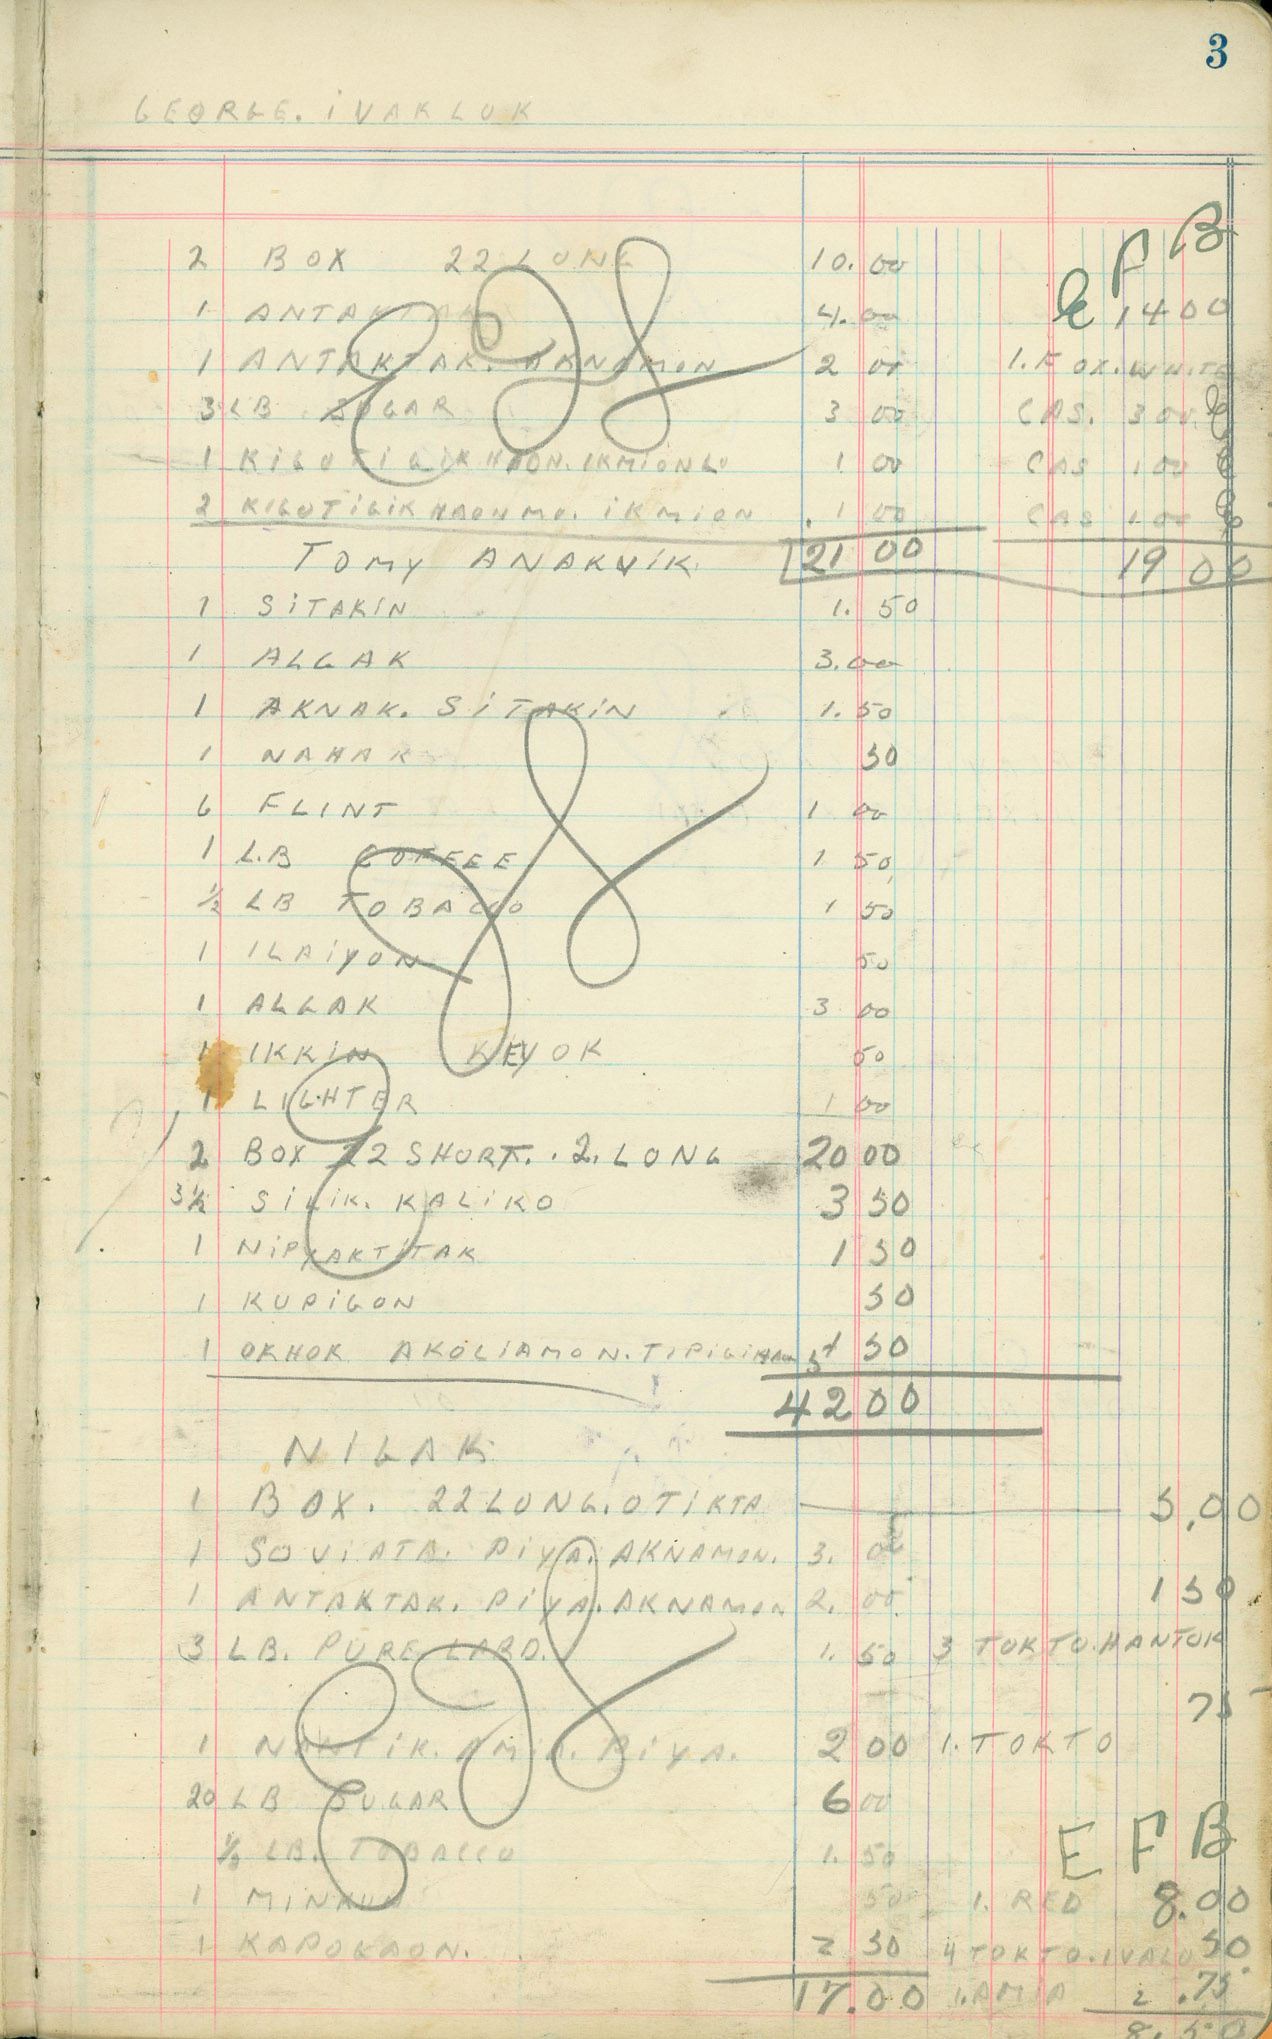 3
GEORGE. IVAKLUK
EFB
2 BOX 22 LONG 10.00
1 4.00 1400
1 ANTAKTAK. AKNAMON 2 00 1. FOX. WHITE
3 LB SUGAR 3 00 CAS. 3 00
1 1 00 CAS 1 00
2 KIGUTIGIK HAONMO. IKMION 1 00 CAS 1 00
TOMY ANAKVIK 21 00 19 00
1 SITAKIN 1.50
1 ALGAK 3.00
1 AKNAK. SITAKIN 1.50
1 NAHAK 50
6 FLINT 1 00
1 LB COFFEE 1 50
½ LB TOBACCO 1 50
1 ILAIYON 50
1 ALGAK 3 00
1 IKKIN KEYOK 50
1 LIGHTER 1 00
2 BOX 22 SHORT. . 2. LONG 20 00
3½ SILIK. KALIKO 3 50
1 NIPYAKTITAK 1 50
1 KUPIGON 50
1 OKHOK AKOLIAMON. 50
42 00
NIGAK
1 BOX. 22 LONG. OTIKTA 5.00
1 SOVIATA. PIYA. AKNAMON. 3. 00
1 ANTAKTAK. PIYA. AKNAMON 2. 00 1 50
3 LB. PURE LARD. 1. 50 3 TOKTO. HANTOK
75
1 PIYA. 2 00 1. TOKTO
20 LB SUGAR 6 00
½ LB. TOBACCO 1. 50 EFB
1 50 1. RED 8.00
1 KAPOKAON. 2 50 4 TOKTO. IVALU 50
17.00 1. AMIA .75